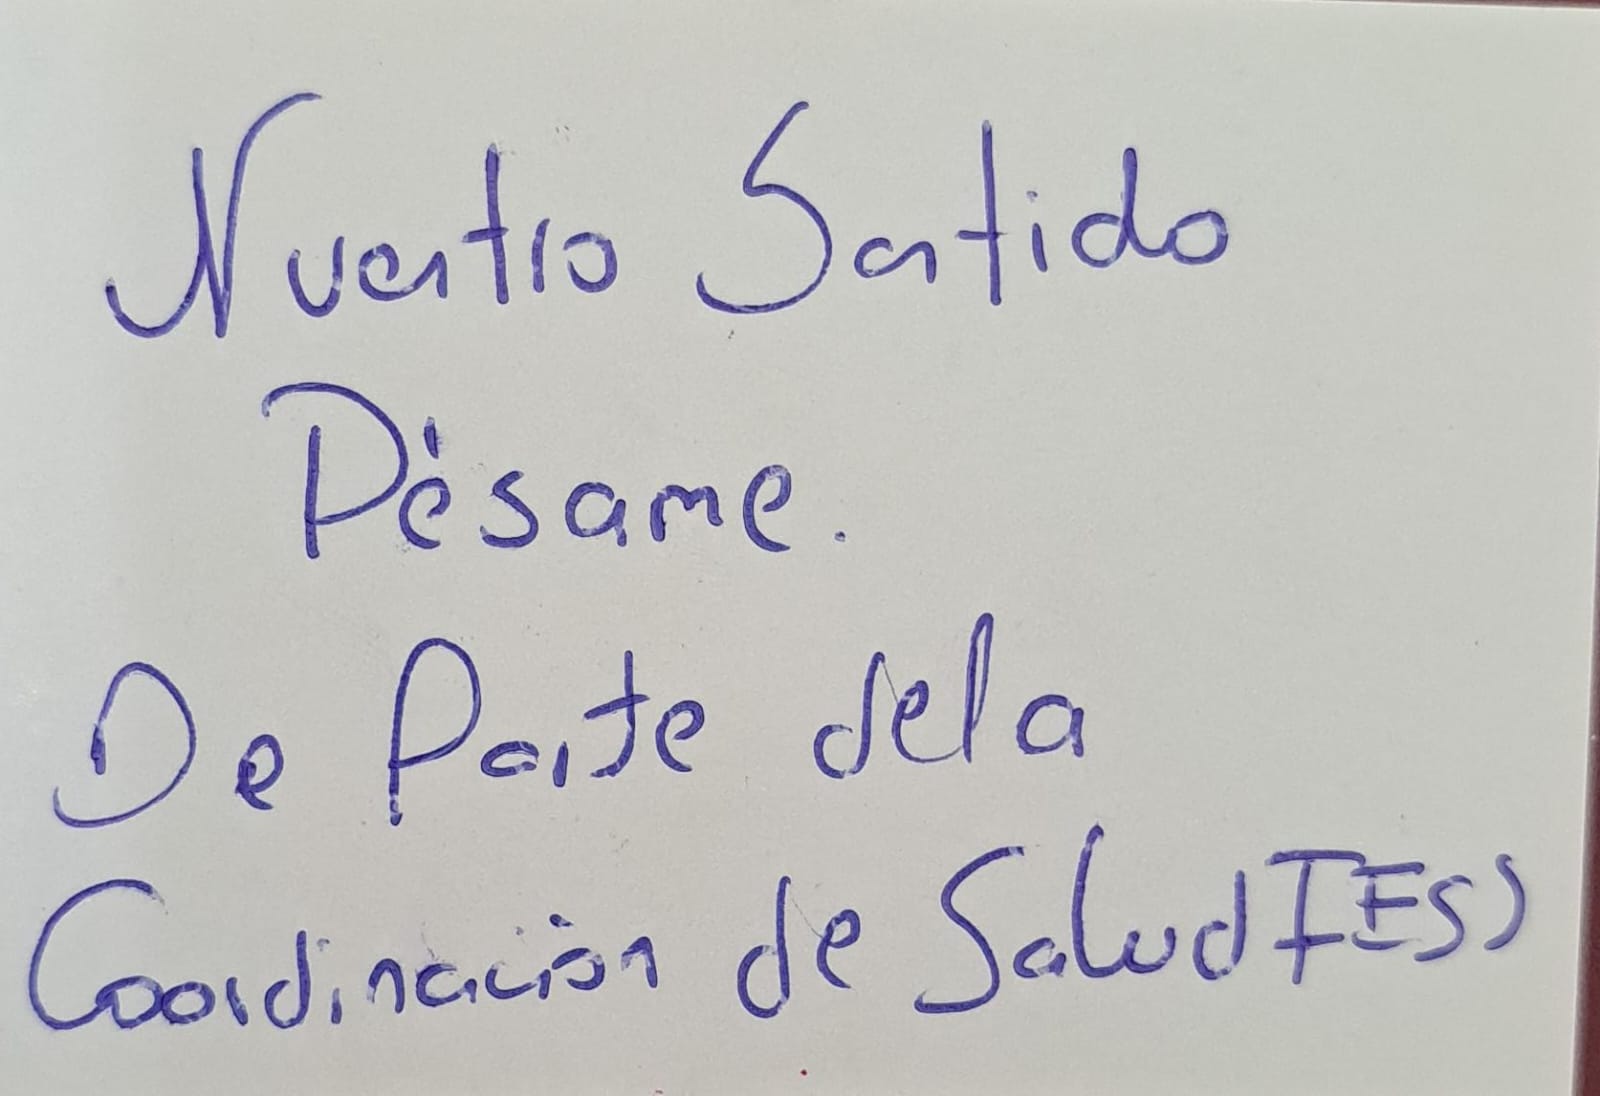 Nuestro Sentido
Pésame.
De Parte dela
Coordinación de Salud IESS